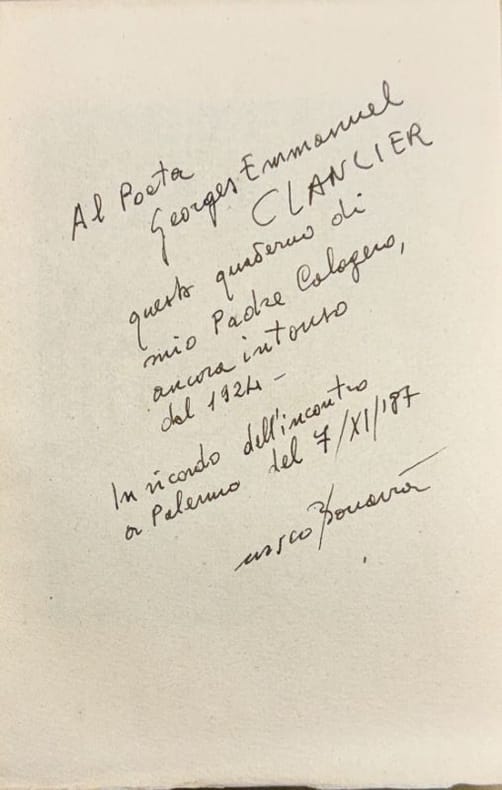 Al Poeta
Georges Emmanuel
CLANCIER
questo quaderno di
mio Padre Calogero,
ancora intonso
dal 1924 -
In ricordo dell'incontro
a Palermo del 7/XI/'87
Bonavia